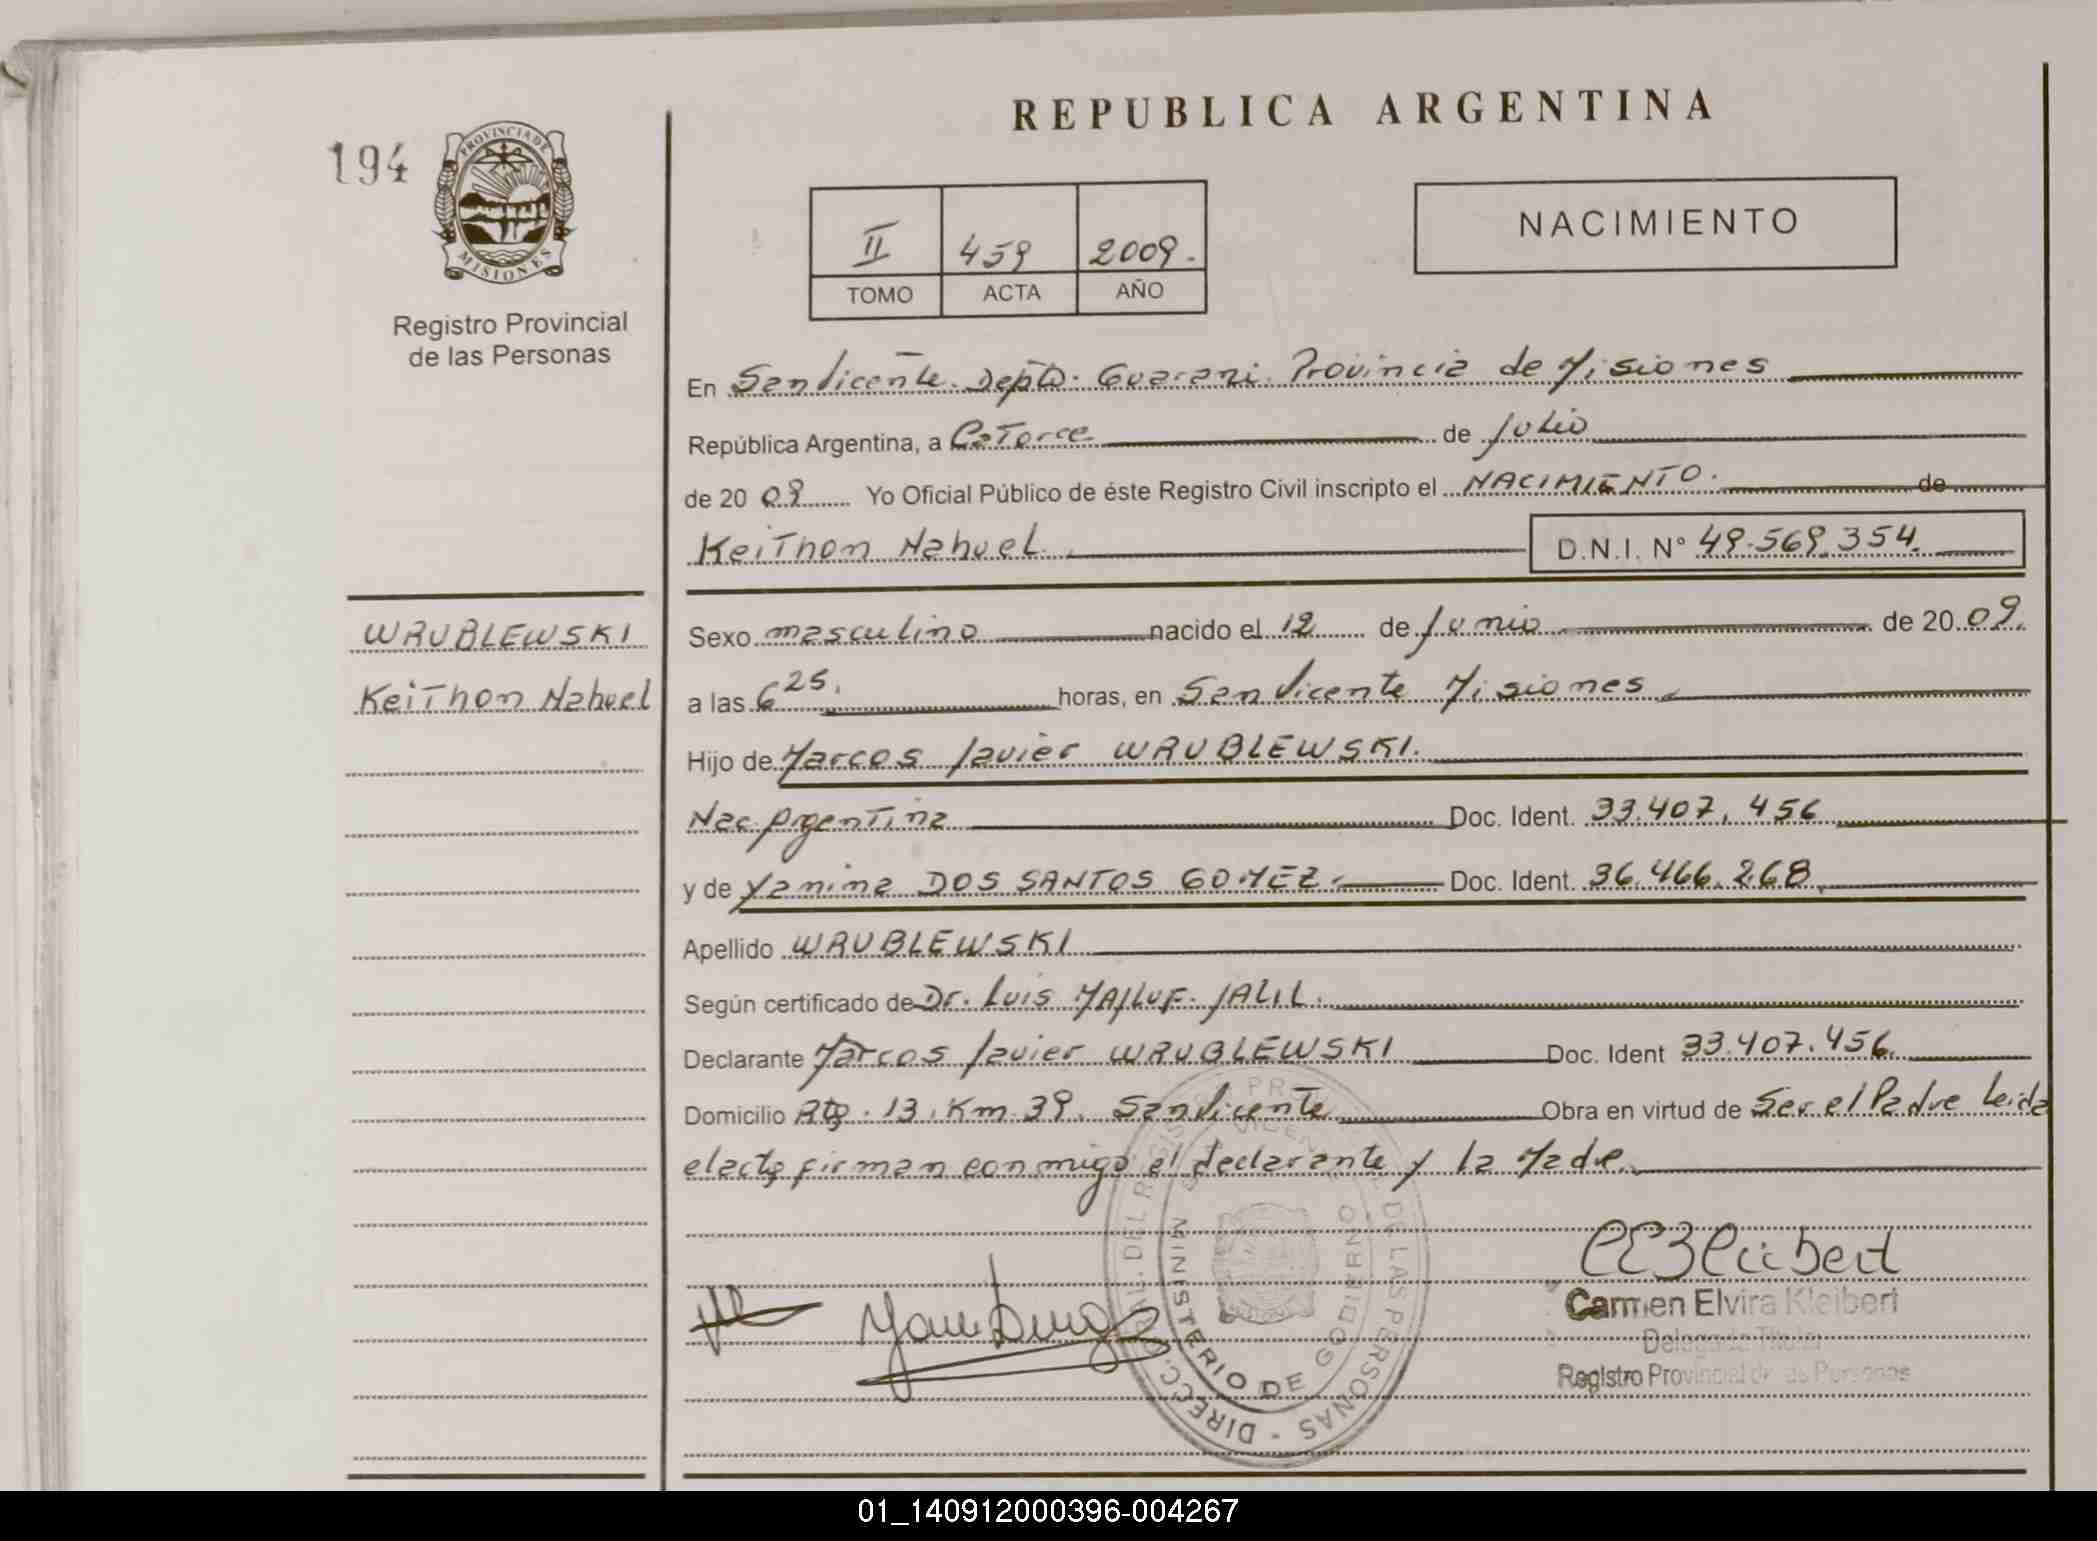 REPUBLICA ARGENTINA
194
PROVINCIA DE
MISIONES
Registro Provincial
de las Personas
II 459 2009.
TOMO ACTA AÑO
NACIMIENTO
En San Vicente. Depto. Guarani. Provincia de Misiones
República Argentina, a Catorce de Julio
de 20 09 Yo Oficial Público de éste Registro Civil inscripto el NACIMIENTO. de
Keithon Nahuel. D.N.I. N° 49.569.354.
WRUBLEWSKI
Keithon Nahuel
Sexo masculino nacido el 12 de Junio de 20 09.
a las 6 25. horas, en San Vicente Misiones
Hijo de Marcos Javier WRUBLEWSKI.
Nac. Argentina Doc. Ident. 33.407.456
y de Yanina DOS SANTOS GOMEZ. Doc. Ident. 36.466.268
Apellido WRUBLEWSKI
Según certificado de Dr. Luis MAJLUF. JALIL.
Declarante Marcos Javier WRUBLEWSKI Doc. Ident 33.407.456
Domicilio Rta. 13. Km 39. San Vicente Obra en virtud de Ser el Padre Leida
el acta firman conmigo el declarante y la Madre.
MINISTERIO DE GOBIERNO
DIRECC. GRAL. DEL REGISTRO PROVINCIAL DE LAS PERSONAS
Carmen Elvira Kleibert
Delegada Titular
Registro Provincial de las Personas
01_140912000396-004267